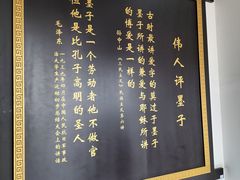 伟人评墨子
古时最讲爱字的莫过于墨子
墨子所讲的兼爱与耶稣所讲
的博爱是一样的
孙中山
《三民主义》民族主义第六讲
墨子是一个劳动者他不做官
但他是比孔子高明的圣人
毛泽东